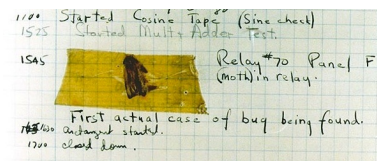 1100 Started Cosine Tape (Sine check)
1525 Started Mult + Adder Test.
1545 Relay #70 Panel F
(moth) in relay.
First actual case of bug being found.
started.
1700 closed down.